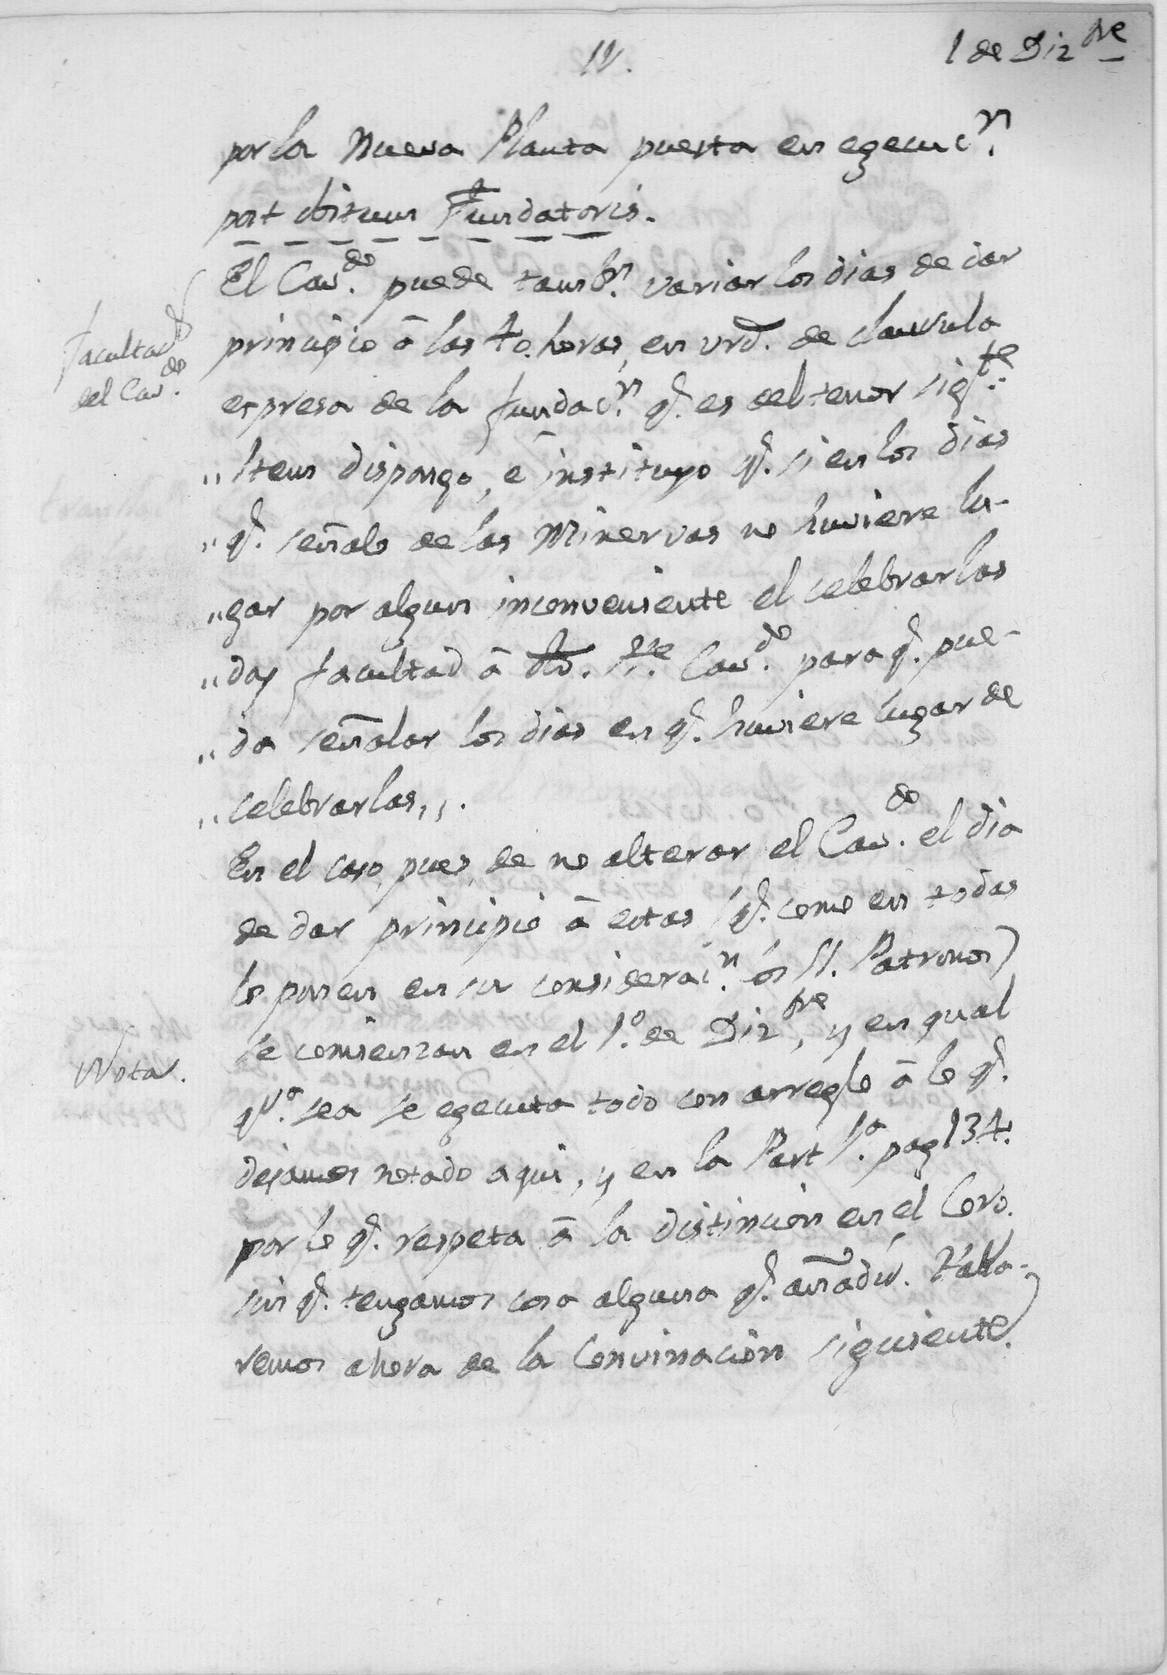 11.
1 de Diz.bre
por la Nueva Planta puesta en egecuc.n
post obitum Fundatoris.
El Cav.do puede tamb.n variar los dias de dar
principio â las 40. horas, en vrd. de clausula
espresa de la fundac.n q.e es del tenor sig.te:
Facultad
del Cav.do
,, Item dispongo, é instituyo q.e si en los dias
,, q.e señalo de las Minervas no huviere lu-
,, gar por algun inconveniente el celebrarlas
,, doy facultad â dho. Ill.e Cav.do para q.e pue-
,, da señalar los dias en q.e huviere lugar de
,, celebrarlas,,.
En el caso pues de no alterar el Cav.do el dia
de dar principio â estas (q.e como en todas
lo ponen en su considerac.n los SS. Patronos)
se comienzan en el 1.º de Diz.bre, y en qual
Nota.
q.ra sea se egecuta todo con arreglo â lo q.e
dejamos notado aqui, y en la Part 1.a pag 134.
por lo q.e respeta â la distincion en el Coro.
sin q.e tengamos cosa alguna q.e añadir. Habla-
remos ahora de la Convinacion siguiente.